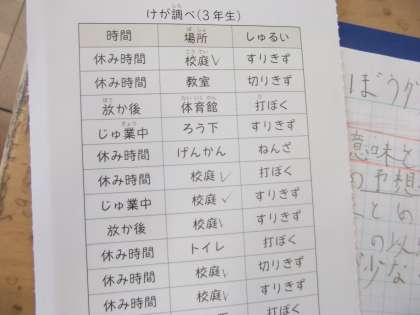 けが調べ(3年生)
時間 場所 しゅるい
休み時間 校庭 すりきず
休み時間 教室 切りきず
放か後 体育館 打ぼく
じゅ業中 ろう下 すりきず
休み時間 げんかん ねんざ
休み時間 校庭 打ぼく
じゅ業中 校庭 すりきず
放か後 校庭 すりきず
休み時間 トイレ 打ぼく
休み時間 校庭 切りきず
休み時間 校庭 すりきず
打ぼく
ぼうグ
意味と
の予想